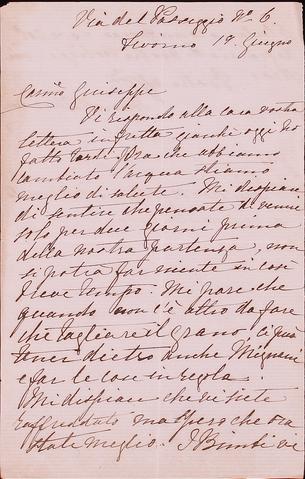 Via del Passeggio No 6.
Livorno 19. Giugno
Carmo Giuseppe
Vi rispondo alla cara vostra
lettera in fretta perchè oggi ho
fatto tardi. Ora che abbiamo
cambiato l'acqua stiamo
meglio di salute. Mi dispiace
di sentire che pensate di venire
solo per due giorni prima
della nostra partenza, non
si potrà far niente in così
breve tempo. Mi pare che
quando non c'è altro da fare
che tagliare il grano ci può
tener dietro anche
e far le cose in regola.
Mi dispiace che siete
raffreddato ma spero che ora
state meglio. I Bimbi vi